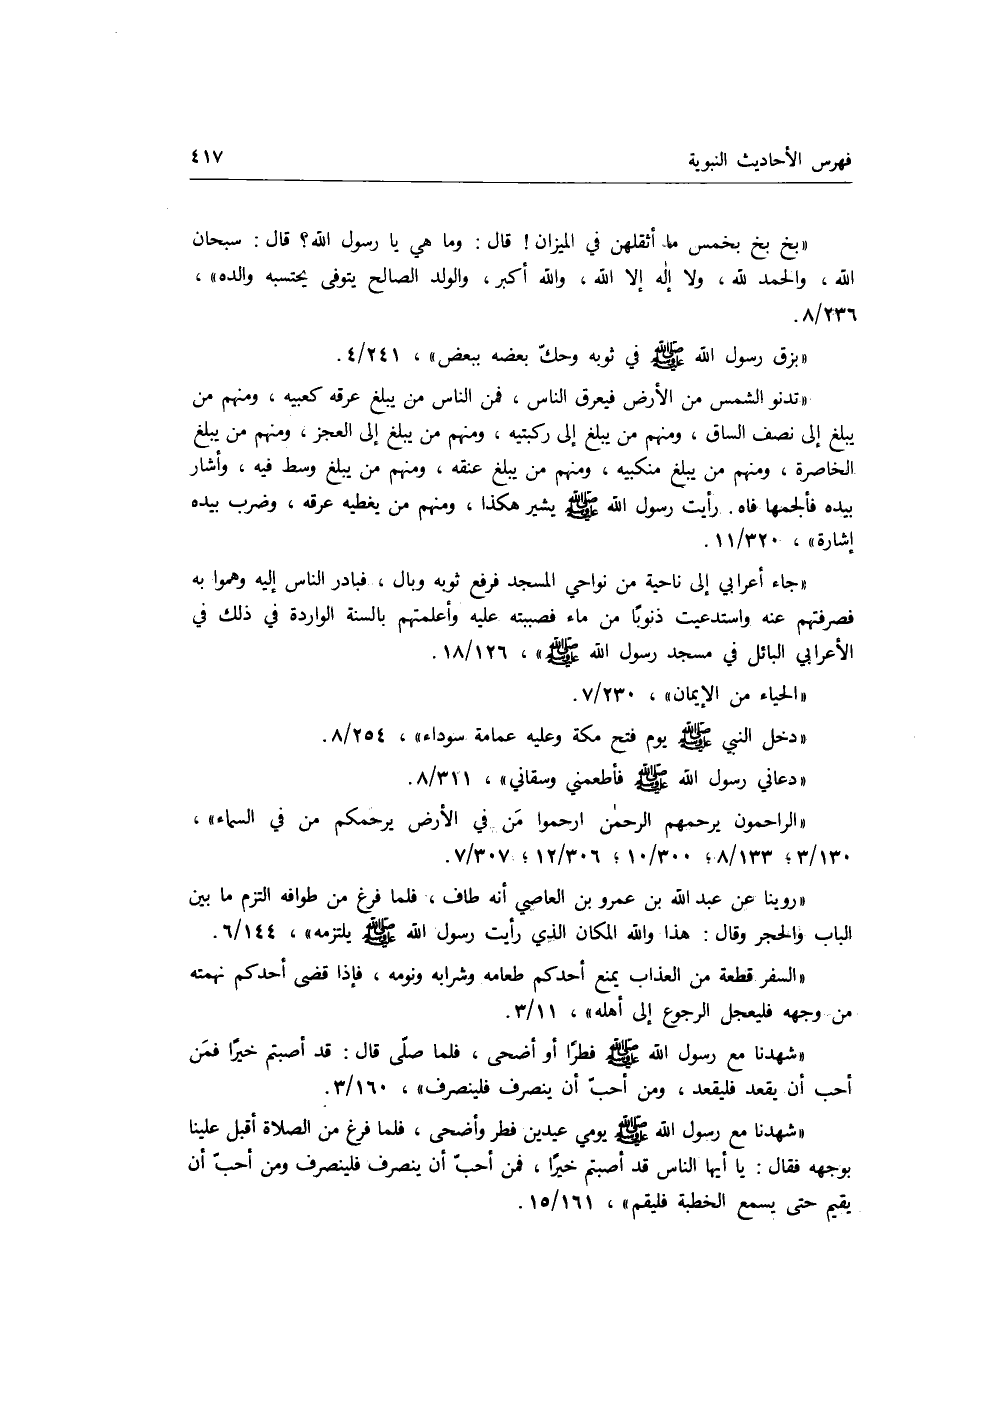 فهرس الأحاديث النبوية ٤١٧
«بخ بخ بخمس ما أثقلهن في الميزان! قال: وما هي يا رسول الله؟ قال: سبحان
الله، والحمد لله، ولا إلٰه إلا الله، والله أكبر، والولد الصالح يتوفى يحتسبه والده»،
٨/٢٣٦.
«بزق رسول الله ﷺ في ثوبه وحكّ بعضه ببعض»، ٤/٢٤١.
«تدنو الشمس من الأرض فيعرق الناس، فمن الناس من يبلغ عرقه كعبيه، ومنهم من
يبلغ إلى نصف الساق، ومنهم من يبلغ إلى ركبتيه، ومنهم من يبلغ إلى العجز، ومنهم من يبلغ
الخاصرة، ومنهم من يبلغ منكبيه، ومنهم من يبلغ عنقه، ومنهم من يبلغ وسط فيه، وأشار
بيده فألجمها فاه. رأيت رسول الله ﷺ يشير هكذا، ومنهم من يغطيه عرقه، وضرب بيده
إشارة»، ١١/٣٢٠.
«جاء أعرابي إلى ناحية من نواحي المسجد فرفع ثوبه وبال، فبادر الناس إليه وهموا به
فصرفتهم عنه واستدعيت ذنوبًا من ماء فصببته عليه وأعلمتهم بالسنة الواردة في ذلك في
الأعرابي البائل في مسجد رسول الله ﷺ»، ١٨/١٢٦.
«الحياء من الإيمان»، ٧/٢٣٠.
«دخل النبي ﷺ يوم فتح مكة وعليه عمامة سوداء»، ٨/٢٥٤.
«دعاني رسول الله ﷺ فأطعمني وسقاني»، ٨/٣١١.
«الراحمون يرحمهم الرحمٰن ارحموا مَن في الأرض يرحمكم من في السماء»،
٣/١٣٠؛ ٨/١٣٣؛ ١٠/٣٠٠؛ ١٢/٣٠٦؛ ٧/٣٠٧.
«روينا عن عبد الله بن عمرو بن العاصي أنه طاف، فلما فرغ من طوافه التزم ما بين
الباب والحجر وقال: هذا والله المكان الذي رأيت رسول الله ﷺ يلتزمه»، ٦/١٤٤.
«السفر قطعة من العذاب يمنع أحدكم طعامه وشرابه ونومه، فإذا قضى أحدكم نهمته
من وجهه فليعجل الرجوع إلى أهله»، ٣/١١.
«شهدنا مع رسول الله ﷺ فطرًا أو أضحى، فلما صلّى قال: قد أصبتم خيرًا فمَن
أحب أن يقعد فليقعد، ومن أحبّ أن ينصرف فلينصرف»، ٣/١٦٠.
«شهدنا مع رسول الله ﷺ يومي عيدين فطر وأضحى، فلما فرغ من الصلاة أقبل علينا
بوجهه فقال: يا أيها الناس قد أصبتم خيرًا، فمن أحبّ أن ينصرف فلينصرف ومن أحبّ أن
يقيم حتى يسمع الخطبة فليقم»، ١٥/١٦١.